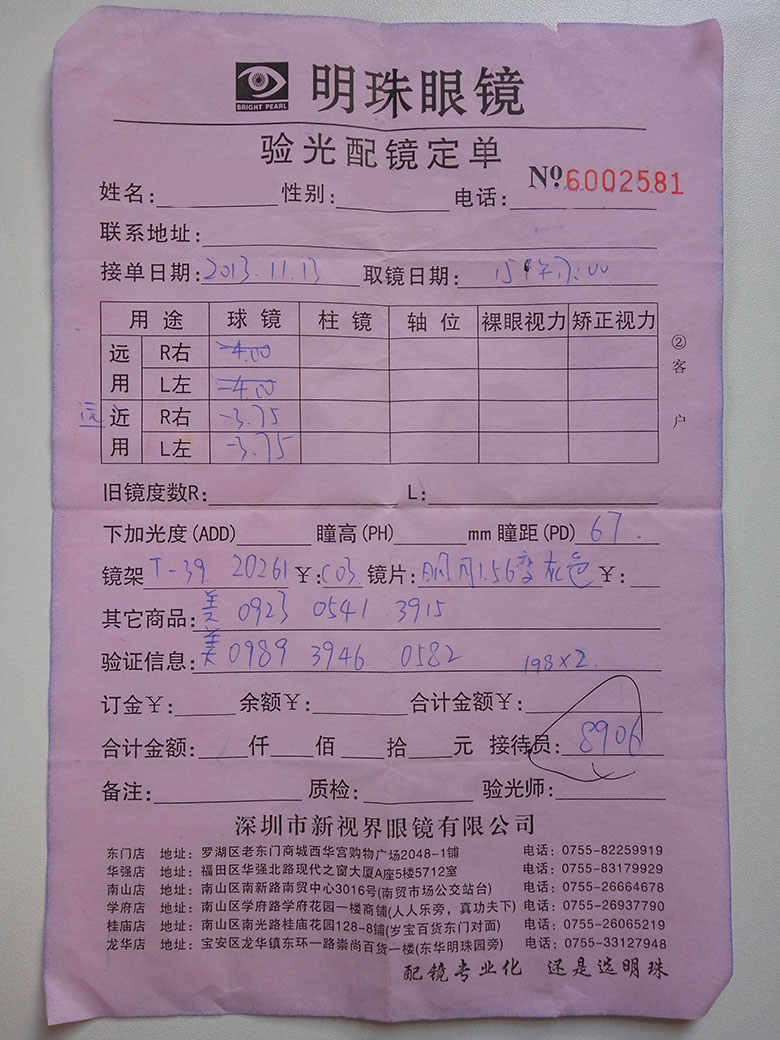 BRIGHT PEARL 明珠眼镜
验光配镜定单
№6002581
姓名: 性别: 电话:
联系地址:
接单日期: 2013.11.13 取镜日期: 15 午7:00
用途 球镜 柱镜 轴位 裸眼视力 矫正视力
远用 R右 -4.00
L左 -4.00
远 近用 R右 -3.75
L左 -3.75
②客户
旧镜度数R: L:
下加光度(ADD) 瞳高(PH) mm 瞳距(PD) 67.
镜架 T-39 20261 ¥: C03 镜片: 明月1.56变灰色 ¥:
其它商品: 美 0923 0541 3915
验证信息: 美 0989 3946 0582 198×2
订金¥: 余额¥: 合计金额¥:
合计金额: 仟 佰 拾 元 接待员: 8906
备注: 质检: 验光师:
深圳市新视界眼镜有限公司
东门店 地址: 罗湖区老东门商城西华宫购物广场2048-1铺 电话: 0755-82259919
华强店 地址: 福田区华强北路现代之窗大厦A座5楼5712室 电话: 0755-83179929
南山店 地址: 南山区南新路南贸中心3016号(南贸市场公交站台) 电话: 0755-26664678
学府店 地址: 南山区学府路学府花园一楼商铺(人人乐旁，真功夫下) 电话: 0755-26937790
桂庙店 地址: 南山区南光路桂庙花园128-8铺(岁宝百货东门对面) 电话: 0755-26065219
龙华店 地址: 宝安区龙华镇东环一路崇尚百货一楼(东华明珠园旁) 电话: 0755-33127948
配镜专业化 还是选明珠